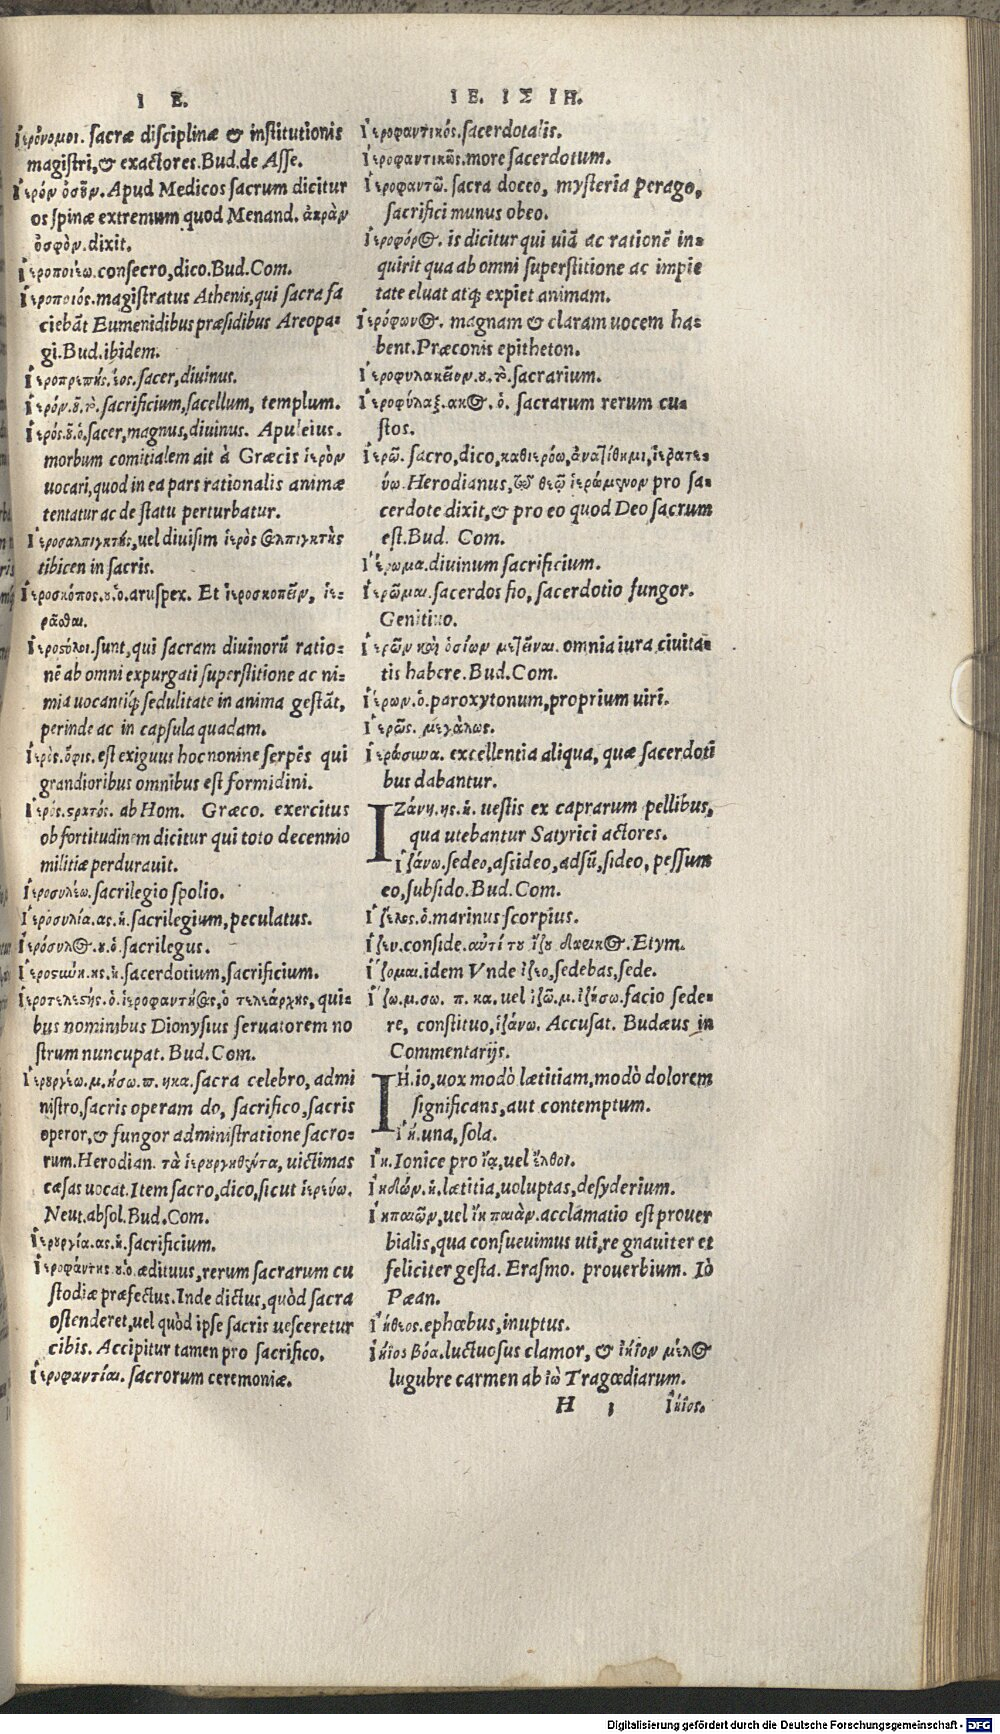 Ι Ε.
Ἱερόνομοι. sacræ disciplinæ & institutionis
magistri, & exactores. Bud. de Asse.
Ἱερόν ὀσοῦν. Apud Medicos sacrum dicitur
os spinæ extremum quod Menand. ἀκρὰν
ὀσφὺν. dixit.
Ἱεροποιέω. consecro, dico. Bud. Com.
Ἱεροποιός. magistratus Athenis, qui sacra fa
ciebāt Eumenidibus præsidibus Areopa-
gi. Bud. ibidem.
Ἱεροπρεπής. έος. sacer, diuinus.
Ἱερόν. οῦ. τὸ. sacrificium, sacellum, templum.
Ἱερός. οῦ. ὁ. sacer, magnus, diuinus. Apuleius.
morbum comitialem ait à Græcis ἱερὸν
uocari, quod in ea pars rationalis animæ
tentatur ac de statu perturbatur.
Ἱεροσαλπιγκτής, uel diuisim ἱερὸς σαλπιγκτὴς
tibicen in sacris.
Ἱεροσκόπος. ου. ὁ. aruspex. Et ἱεροσκοπεῖν, ἱε-
ρᾶσθαι.
Ἱεροσόλοι. sunt, qui sacram diuinorū ratio-
nē ab omni expurgati superstitione ac ni-
mia uocantiq; sedulitate in anima gestāt,
perinde ac in capsula quadam.
Ἱερὸς. ὄφις. est exiguus hoc nonine serpēs qui
grandioribus omnibus est formidini.
Ἱερός. στρατός. ab Hom. Græco. exercitus
ob fortitudinem dicitur qui toto decennio
militiæ perdurauit.
Ἱεροσυλέω. sacrilegio spolio.
Ἱεροσυλία. ας. ἡ. sacrilegium, peculatus.
Ἱερόσυλος. ου. ὁ. sacrilegus.
Ἱεροσαύνη. ης. ἡ. sacerdotium, sacrificium.
Ἱεροτελεστής. ὁ. ἱεροφαντήσας, ὁ τελεάρχης, qui-
bus nominibus Dionysius seruatorem no
strum nuncupat. Bud. Com.
Ἱερουργέω. μ. ήσω. π. ηκα. sacra celebro, admi
nistro, sacris operam do, sacrifico, sacris
operor, & fungor administratione sacro-
rum. Herodian. τὰ ἱερουργηθέντα, uictimas
cæsas uocat. Item sacro, dico, sicut ἱερεύω.
Neut. absol. Bud. Com.
Ἱερουργία. ας. ἡ. sacrificium.
Ἱεροφάντης. ου. ὁ. ædituus, rerum sacrarum cu
stodiæ præfectus. Inde dictus, quòd sacra
ostenderet, uel quòd ipse sacris uesceretur
cibis. Accipitur tamen pro sacrifico.
Ἱεροφαντίαι. sacrorum ceremoniæ.
ΙΕ. ΙΖ ΙΗ.
Ἱεροφαντικός. sacerdotalis.
Ἱεροφαντικῶς. more sacerdotum.
Ἱεροφαντῶ. sacra doceo, mysteria perago,
sacrifici munus obeo.
Ἱεροφόρος. is dicitur qui uiā ac rationē in-
quirit qua ab omni superstitione ac impie
tate eluat atq; expiet animam.
Ἱερόφωνος. magnam & claram uocem ha-
bent. Præconis epitheton.
Ἱεροφυλακεῖον. ου. τὸ. sacrarium.
Ἱεροφύλαξ. ακος. ὁ. sacrarum rerum cu-
stos.
Ἱερῶ. sacro, dico, καθιερόω, ἀνατίθημι, ἱερατε-
ύω. Herodianus, τῷ θεῷ ἱερώμενον pro sa-
cerdote dixit, & pro eo quod Deo sacrum
est. Bud. Com.
Ἱέρωμα. diuinum sacrificium.
Ἱερῶμαι. sacerdos fio, sacerdotio fungor.
Genitiuo.
Ἱερῶν καὶ ὁσίων μετεῖναι. omnia iura ciuita-
tis habere. Bud. Com.
Ἱέρων. ὁ. paroxytonum, proprium uiri.
Ἱερῶς. μεγάλως.
Ἱερώσυνα. excellentia aliqua, quæ sacerdoti
bus dabantur.
ΙΖάνη. ης. ἡ. uestis ex caprarum pellibus,
qua utebantur Satyrici actores.
Ἱζάνω. sedeo, assideo, adsū, sideo, pessum
eo, subsido. Bud. Com.
Ἵζελος. ὁ. marinus scorpius.
Ἵζευ. conside. αὐτί του ἵζου δωρικῶς. Etym.
Ἵζομαι. idem Vnde ἵζεο, sedebas, sede.
Ἵζω. μ. σω. π. κα. uel ἱζῶ. μ. ἱζήσω. facio sede-
re, constituo, ἱζάνω. Accusat. Budæus in
Commentarijs.
ΙΗ. io, uox modò lætitiam, modò dolorem
significans, aut contemptum.
Ἴη. una, sola.
Ἴη. Ionice pro ἴᾳ, uel ἔλθοι.
Ἰηδών. ἡ. lætitia, uoluptas, desyderium.
Ἰηπαιῶν, uel ἴη παιὰν. acclamatio est prouer
bialis, qua consueuimus uti, re gnauiter et
feliciter gesta. Erasmo. prouerbium. Iò
Pæan.
Ἰήθεος. ephœbus, inuptus.
Ἰήϊος βόα. luctuosus clamor, & ἰήϊον μέλος
lugubre carmen ab ἰὼ Tragœdiarum.
H 1 Ἰήϊος.
Digitalisierung gefördert durch die Deutsche Forschungsgemeinschaft - DFG